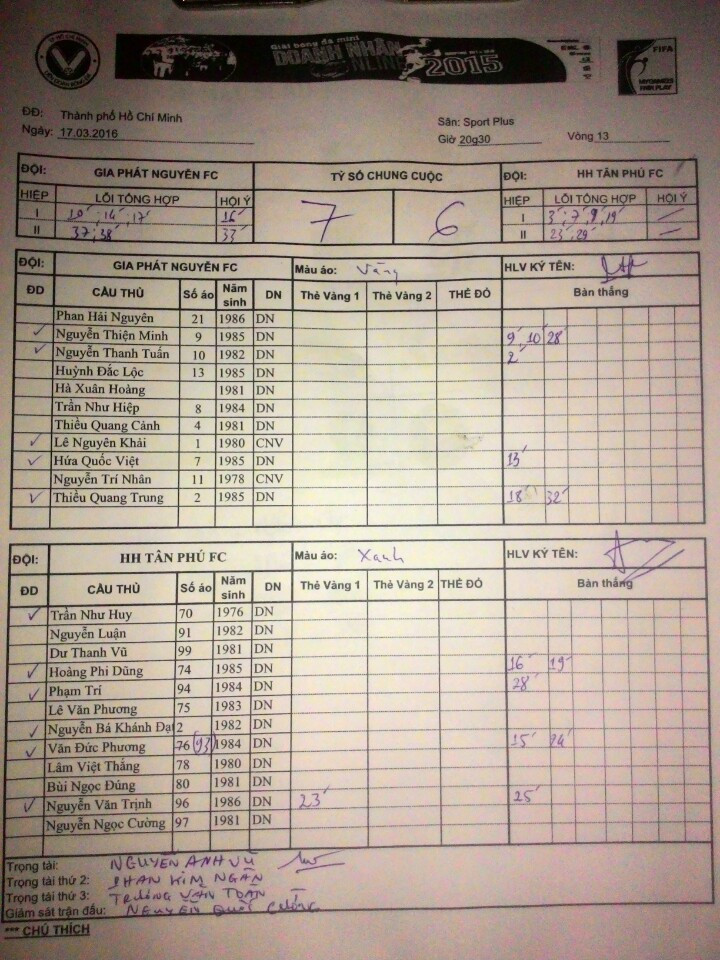 Giải bóng đá mini
DOANH NHÂN
2015
FIFA
MY GAME IS
FAIR PLAY
ĐĐ: Thành phố Hồ Chí Minh
Sân: Sport Plus
Ngày: 17.03.2016
Giờ 20g30 Vòng 13
ĐỘI: GIA PHÁT NGUYÊN FC TỶ SỐ CHUNG CUỘC ĐỘI: HH TÂN PHÚ FC
HIỆP LỖI TỔNG HỢP HỘI Ý 7 6 HIỆP LỖI TỔNG HỢP HỘI Ý
I 10' ; 14' ; 17' 16' I 3' ; 7' 9' , 19' —
II 37' ; 38' 33' II 23' , 29' —
ĐỘI: GIA PHÁT NGUYÊN FC Màu áo: Vàng HLV KÝ TÊN:
ĐD CẦU THỦ Số áo Năm sinh DN Thẻ Vàng 1 Thẻ Vàng 2 THẺ ĐỎ Bàn thắng
Phan Hải Nguyên 21 1986 DN
✓ Nguyễn Thiện Minh 9 1985 DN 9' 10' 28'
✓ Nguyễn Thanh Tuấn 10 1982 DN 2'
Huỳnh Đắc Lộc 13 1985 DN
Hà Xuân Hoàng 1981 DN
Trần Như Hiệp 8 1984 DN
Thiều Quang Cảnh 4 1981 DN
✓ Lê Nguyên Khải 1 1980 CNV
✓ Hứa Quốc Việt 7 1985 DN 13'
Nguyễn Trí Nhân 11 1978 CNV
✓ Thiều Quang Trung 2 1985 DN 18' 32'
ĐỘI: HH TÂN PHÚ FC Màu áo: Xanh HLV KÝ TÊN:
ĐD CẦU THỦ Số áo Năm sinh DN Thẻ Vàng 1 Thẻ Vàng 2 THẺ ĐỎ Bàn thắng
✓ Trần Như Huy 70 1976 DN
Nguyễn Luận 91 1982 DN
Dư Thanh Vũ 99 1981 DN
✓ Hoàng Phi Dũng 74 1985 DN 16' 19'
✓ Phạm Trí 94 1984 DN 28'
Lê Văn Phương 75 1983 DN
✓ Nguyễn Bá Khánh Đạt 2 1982 DN
✓ Văn Đức Phương 76 (93) 1984 DN 15' 24'
Lâm Việt Thắng 78 1980 DN
Bùi Ngọc Đủng 80 1981 DN
✓ Nguyễn Văn Trịnh 96 1986 DN 23' 25'
Nguyễn Ngọc Cường 97 1981 DN
Trọng tài: NGUYỄN ANH VŨ
Trọng tài thứ 2: PHAN KIM NGÂN
Trọng tài thứ 3: TRƯƠNG VĂN TOÀN
Giám sát trận đấu: NGUYỄN QUỐC CƯỜNG
*** CHÚ THÍCH